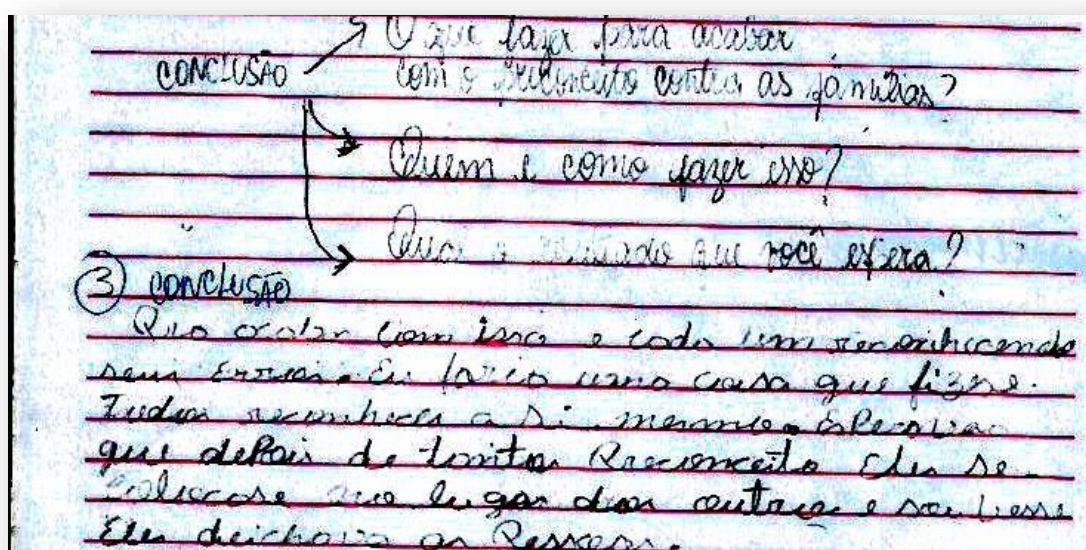 O que fazer para acabar
CONCLUSÃO com o preconceito contra as famílias?
Quem e como fazer isso?
Qual o resultado que você espera?
3 CONCLUSÃO
com isso e cada um reconhecendo
seus erros. Eu fazia uma coisa que fizese
Todos reconhecer a si mesmo.
que depois de tantos Preconceito eles se
colocase no lugar dos outros e soubesse
eles deichava as Pessoas.